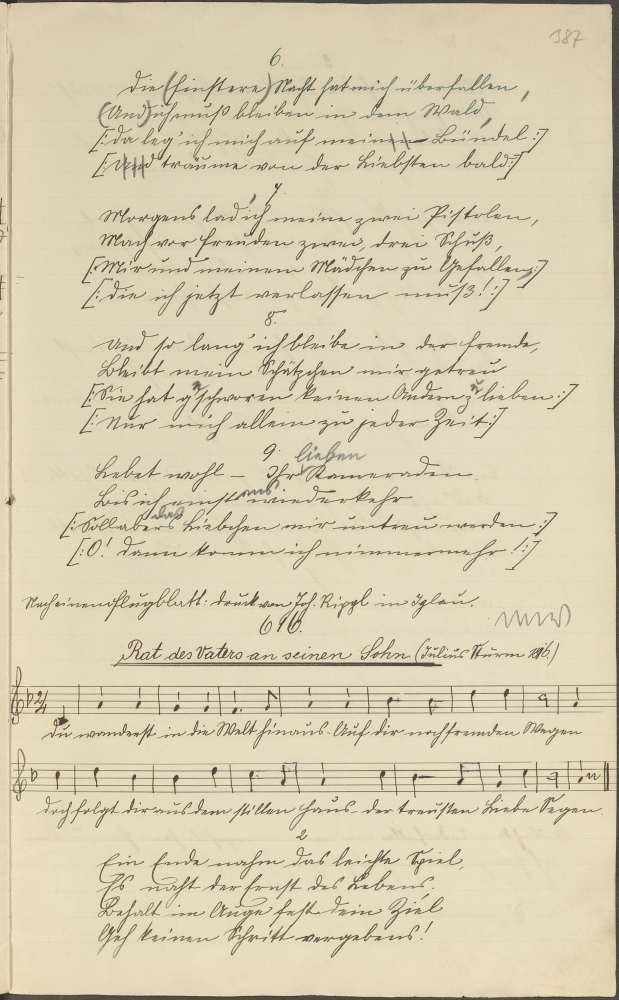 387
6.
Die (finstere) Nacht hat mich überfallen,
(Und) ich muß bleiben in dem Wald,
[: Da leg' ich mich auf meinen Bündel :]
[: Und träume von der Liebsten bald :]
7.
Morgens lad' ich meine zwei Pistolen,
Mach vor Freuden zwei, drei Schuß,
[: Mir und meinem Mädchen zu Gefallen :]
[: Die ich jetzt verlassen muß! :]
8.
Und so lang' ich bleibe in der Fremde,
Bleibt mein Schätzchen mir getreu
[: Sie hat g'schworen keinen Andern z' lieben :]
[: Nur mich allein zu jeder Zeit :]
9.
lieben
Lebet wohl – Ihr Kameraden
Bis ich einst aus wiederkehr
[: Soll aber's das Liebchen mir untreu werden :]
[: O! dann komm ich nimmermehr! :]
Nach einem Flugblatt: Druck von Joh. Rippl in Iglau.
696.
Rat des Vaters an seinen Sohn (Julius Sturm 1816)
2/4
Du wanderst in die Welt hinaus. Auf dir noch fremden Wegen
doch folgt dir aus dem stillen Haus der treusten Liebe Segen.
2
Ein Ende nahm das leichte Spiel,
Es naht der Ernst des Lebens.
Behalt im Auge fest dein Ziel
Geh keinen Schritt vergebens!